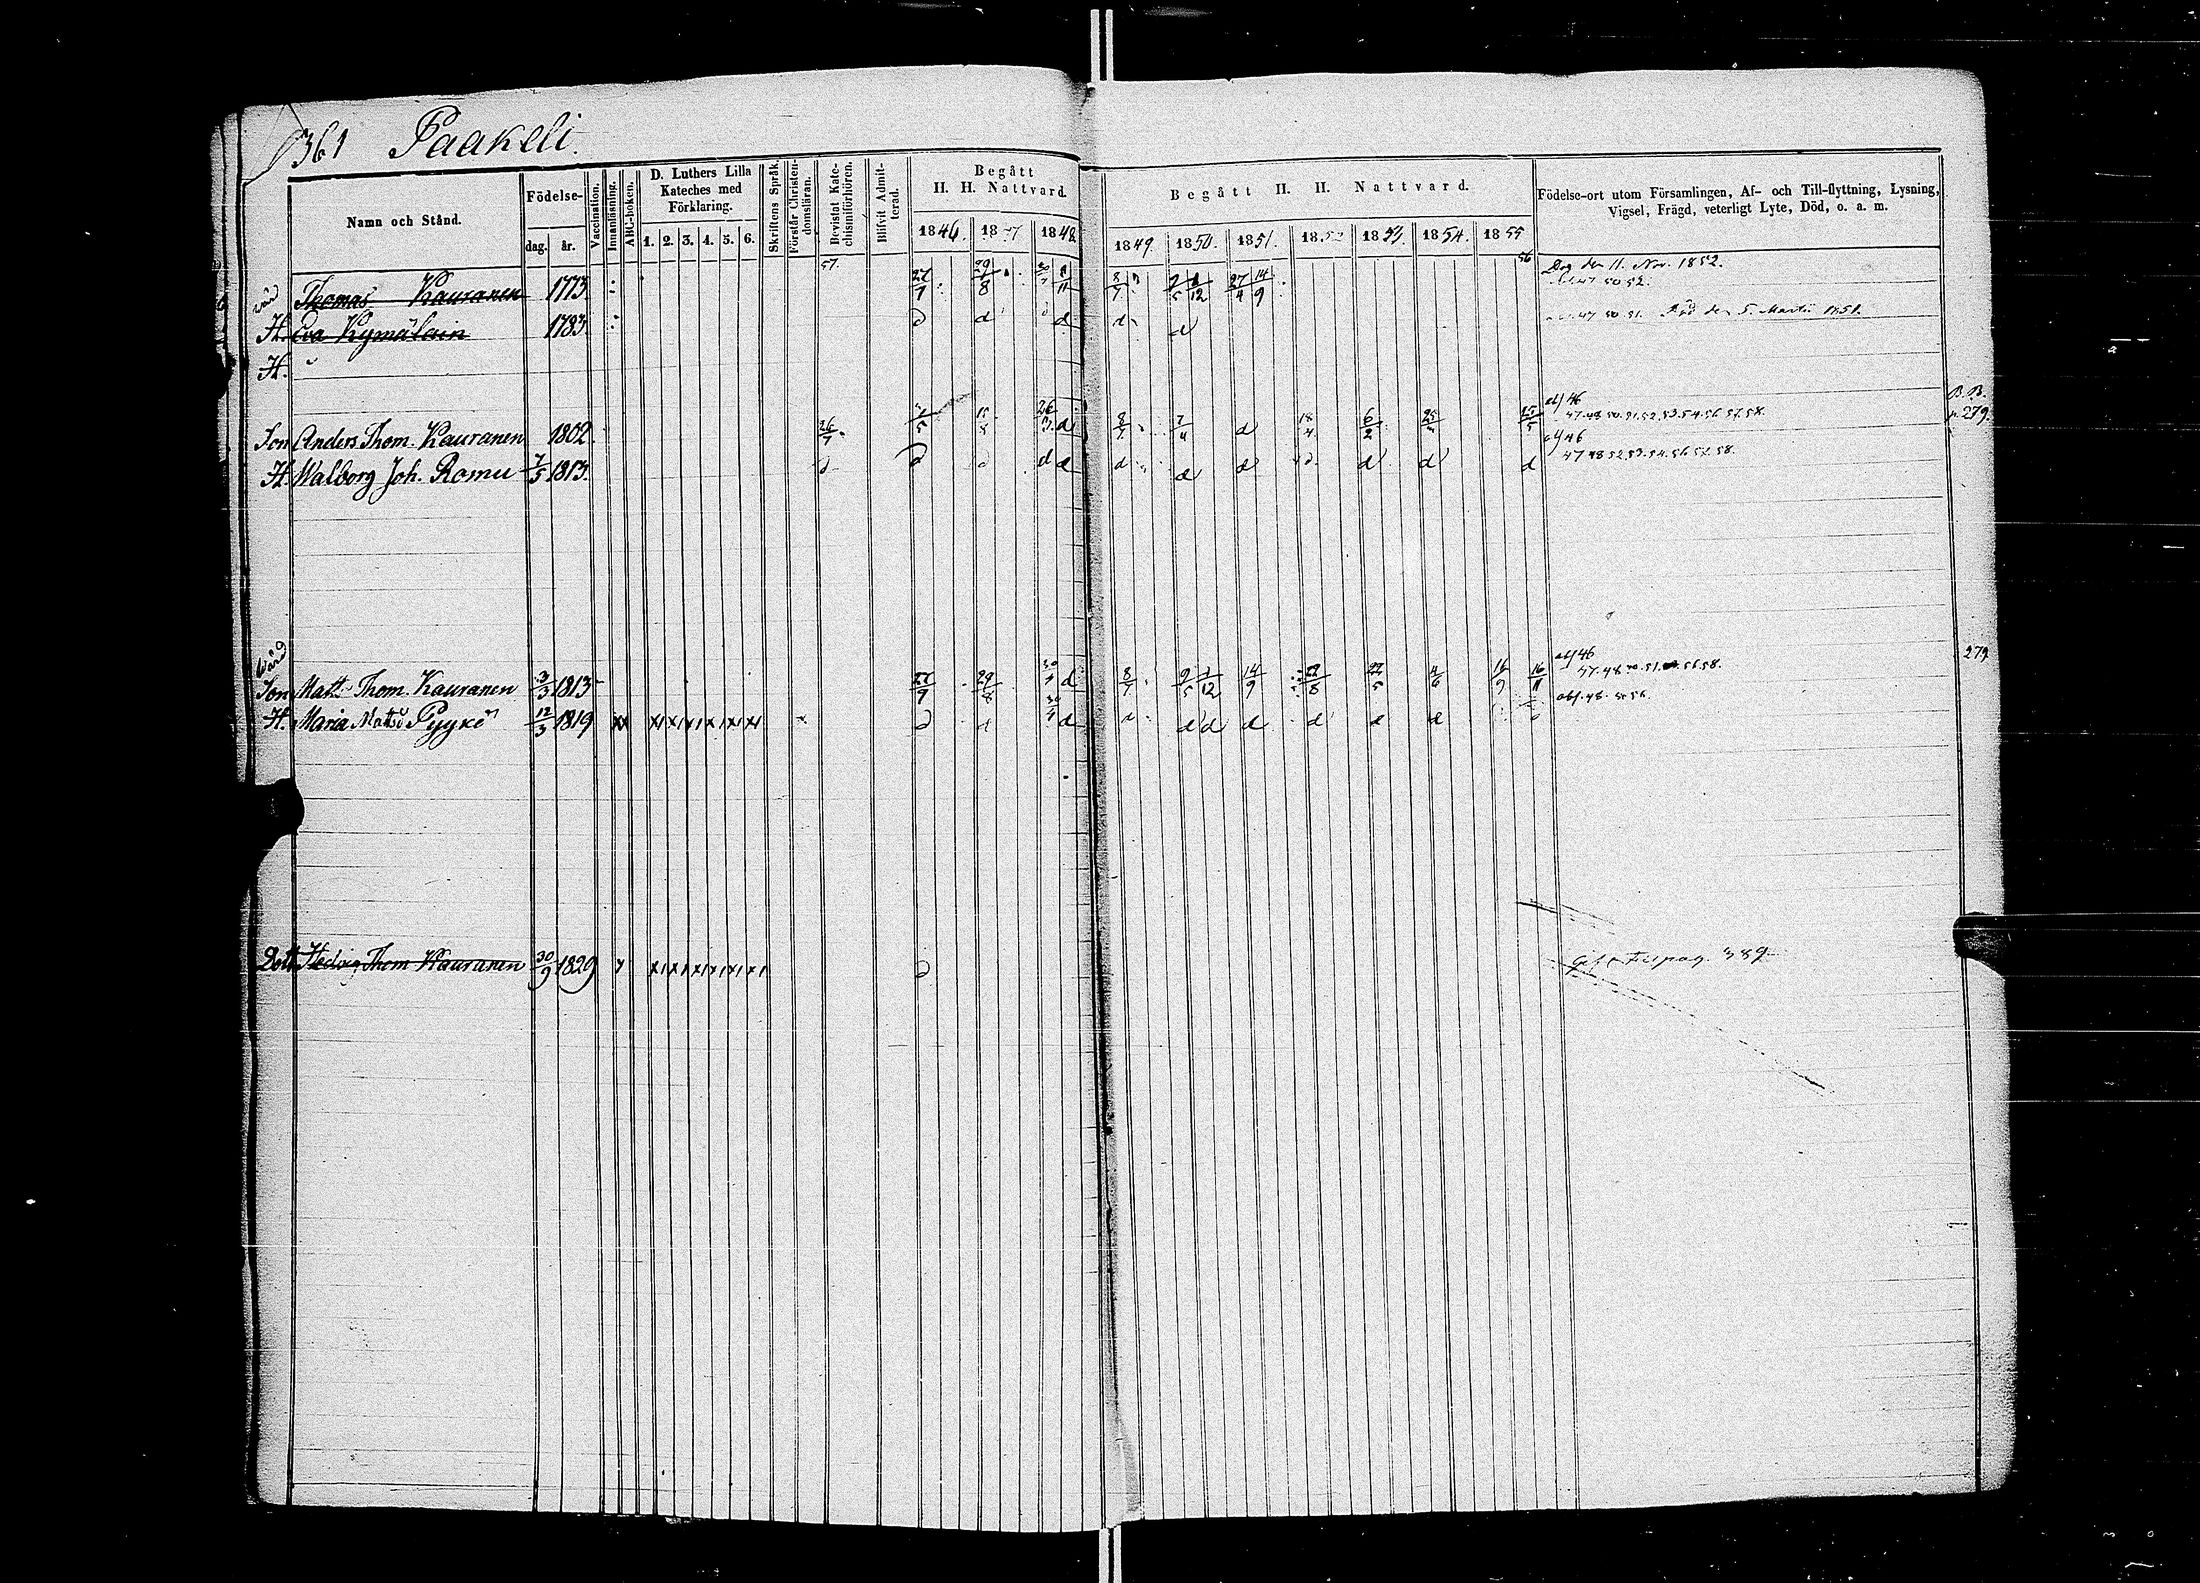 361 Paakeli.
Namn och Stånd. Födelse- dag. år. Vaccination. Innanläsning. ABC-boken. D. Luthers Lilla Kateches med Förklaring. 1. 2. 3. 4. 5. 6. Skriftens Språk. Förstår Christendomsläran. Bevistat Katechismiförhören. Blifvit Admitterad. Begått H. H. Nattvard. 1846. 1847 1848 Begått H. H. Nattvard. 1849. 1850. 1851. 1852 1853. 1854. 1855 56 Födelse-ort utom Församlingen, Af- och Till-flyttning, Lysning, Vigsel, Frägd, veterligt Lyte, Död, o. a. m.
57.
Thomas Kauranen 1773. 27/7 29/8 8/7 9/5 1/12 27/4 14/9 Dog den 11. Nov. 1852.
H. Eva Kymäläin 1783. d d d d d Död den 5. Martii 1851.
H.
B. B.
Son Anders Thom. Kauranen 1802. 26/7 26/3 d 8/7 7/4 d 18/4 6/2 25/5 abs 46 47. 48. 50. 51. 52. 53. 54. 56. 57. 58. p. 279.
H. Walborg Joh. Romu 7/5 1813. d d d d d d d d d d d d abs 46 47 48 52. 53. 54. 56. 57. 58.
Wärd
Son Matt. Thom. Kauranen 3/3 1813 27/7 29/8 30/4 d 8/7 9/5 1/12 14/9 22/8 22/5 4/6 16/9 16/11 abs 46 47. 48. 50. 51. 56. 58. 279
H. Maria Matts Pyykö 12/3 1819 xx x x x x x x d d 30/4 d d d d d d d d abs. 48. 56.
Dott. Hedvig Thom Kauranen 30/9 1829 x x x x x x d Gift till pag. 389